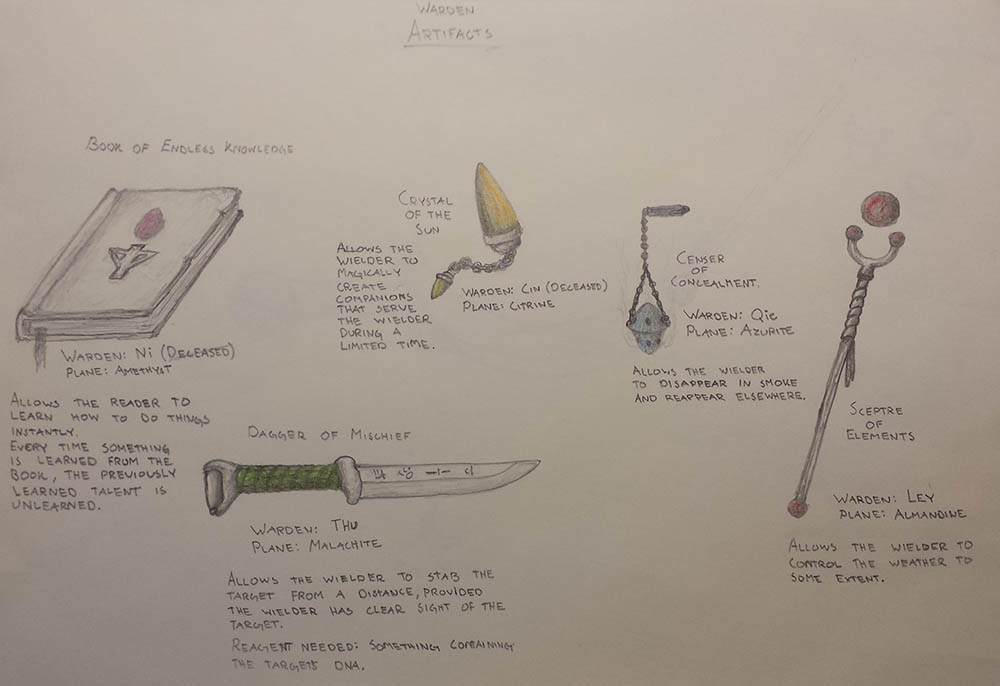 WARDEN
ARTIFACTS
BOOK OF ENDLESS KNOWLEDGE
WARDEN: NI (DECEASED)
PLANE: AMETHYST
ALLOWS THE READER TO
LEARN HOW TO DO THINGS
INSTANTLY.
EVERY TIME SOMETHING
IS LEARNED FROM THE
BOOK, THE PREVIOUSLY
LEARNED TALENT IS
UNLEARNED.
CRYSTAL
OF THE
SUN
ALLOWS THE
WIELDER TO
MAGICALLY
CREATE
COMPANIONS
THAT SERVE
THE WIELDER
DURING A
LIMITED TIME.
WARDEN: CIN (DECEASED)
PLANE: CITRINE
CENSER
OF
CONCEALMENT.
WARDEN: QIE
PLANE: AZURITE
ALLOWS THE WIELDER
TO DISAPPEAR IN SMOKE
AND REAPPEAR ELSEWHERE.
SCEPTRE
OF
ELEMENTS
WARDEN: LEY
PLANE: ALMANDINE
ALLOWS THE WIELDER TO
CONTROL THE WEATHER TO
SOME EXTENT.
DAGGER OF MISCHIEF
WARDEN: THU
PLANE: MALACHITE
ALLOWS THE WIELDER TO STAB THE
TARGET FROM A DISTANCE, PROVIDED
THE WIELDER HAS CLEAR SIGHT OF THE
TARGET.
REAGENT NEEDED: SOMETHING CONTAINING
THE TARGETS DNA.